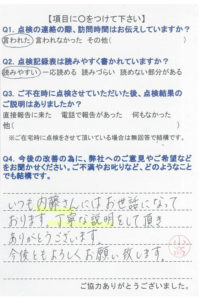 【項目に○をつけて下さい】
Q1. 点検の連絡の際、訪問時間はお伝えしていますか?
言われた 言われなかった その他( )
Q2. 点検記録表は読みやすく書かれていますか?
読みやすい 一応読める 読みづらい 読めない部分がある
Q3. ご不在時に点検させていただいた後、点検結果の
ご説明はありましたか?
直接報告に来た 電話で報告があった 何もなかった
他( )
※ご在宅時に点検をさせて頂いている場合は無回答で結構です。
Q4. 今後の改善の為に、弊社へのご意見やご希望など
をお聞かせください。ご不満やお叱りなど、どのようなこと
でも結構です。
いつも内藤さんにはお世話になって
おります。丁寧な説明をして頂き
ありがとうございます。
今後ともよろしくお願い致します。
ご協力ありがとうございました。